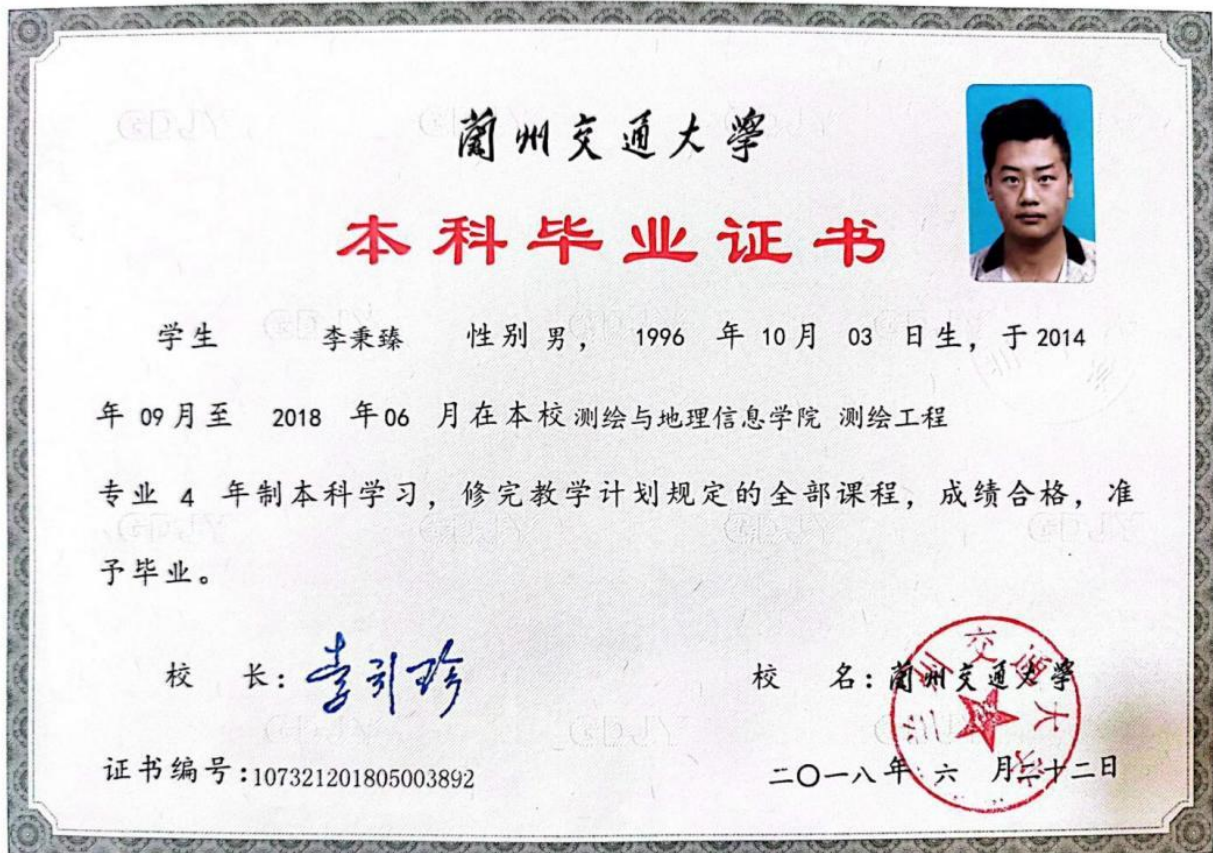 蘭州交通大學
本科毕业证书
学生 李秉臻 性别 男， 1996 年 10 月 03 日生，于 2014
年 09 月至 2018 年 06 月在本校 测绘与地理信息学院 测绘工程
专业 4 年制本科学习，修完教学计划规定的全部课程，成绩合格，准
予毕业。
校 长：李引珍
校 名：蘭州交通大學
证书编号：107321201805003892
二〇一八年 六 月二十二日